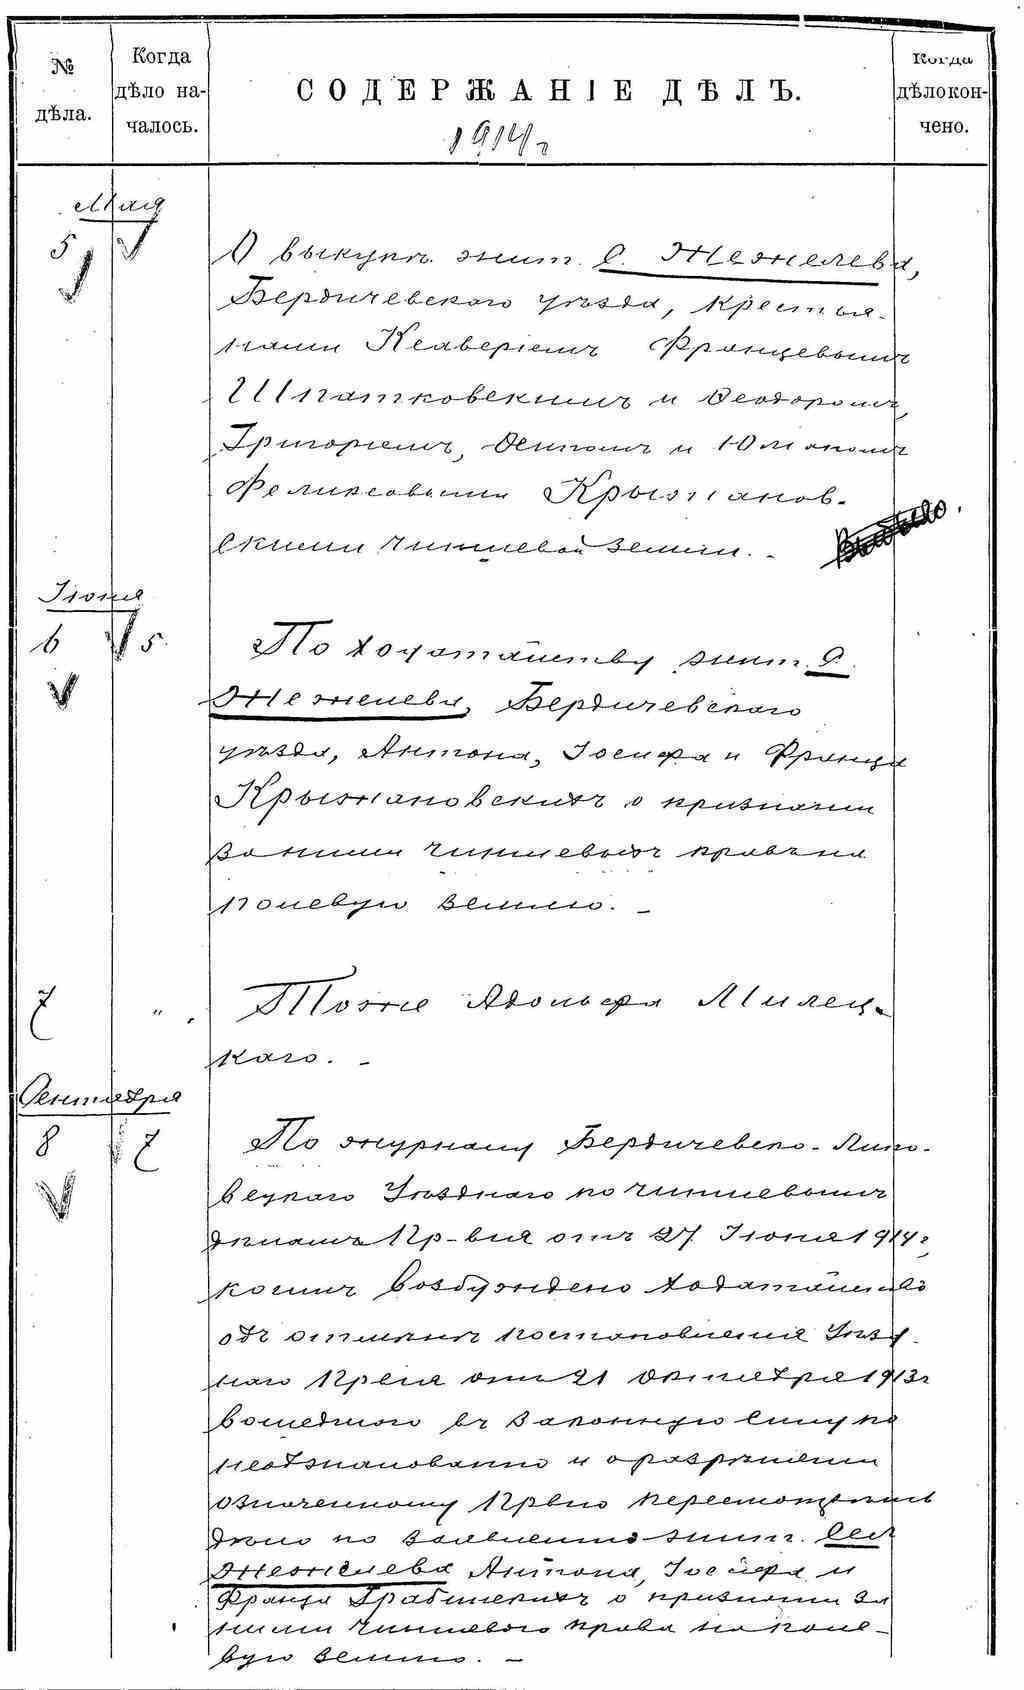 № дѣла.
Когда дѣло началось.
СОДЕРЖАНІЕ ДѢЛЪ.
Когда дѣло кончено.
1914 г
Мая
5
О выкупѣ жит. С. Жежелева,
Бердичевскаго уѣзда, крестья-
нами Ксаверіемъ Францевымъ
Шпатковскимъ и Ѳеодоромъ,
Григоріемъ, Осипомъ и Юліаномъ
Феликсовыми Крыжанов-
скими чиншевой земли. -
Выбыло.
Іюня
6 5
По ходатайству жит. С.
Жежелева, Бердичевскаго
уѣзда, Антона, Іосифа и Франца
Крыжановскихъ о признаніи
за ними чиншевыхъ правъ на
полевую землю. -
7 "
Тоже Адольфа Милец-
каго. -
Сентября
8 7
По журналу Бердичевско-Липо-
вецкаго Уѣзднаго по чиншевымъ
дѣламъ Пр-вія отъ 27 Іюня 1914 г,
коимъ возбуждено ходатайство
объ отмѣнѣ постановленія Уѣзд-
наго Пр-вія отъ 21 Октября 1913 г
вошедшаго въ законную силу по
необжалованію и о разрѣшеніи
означенному Пр-вію пересмотрѣть
дѣло по заявленію жит. Сел
Жежелева Антона, Іосифа и
Франца Грабинскихъ о признаніи за
ними чиншеваго права на поле-
вую землю. -